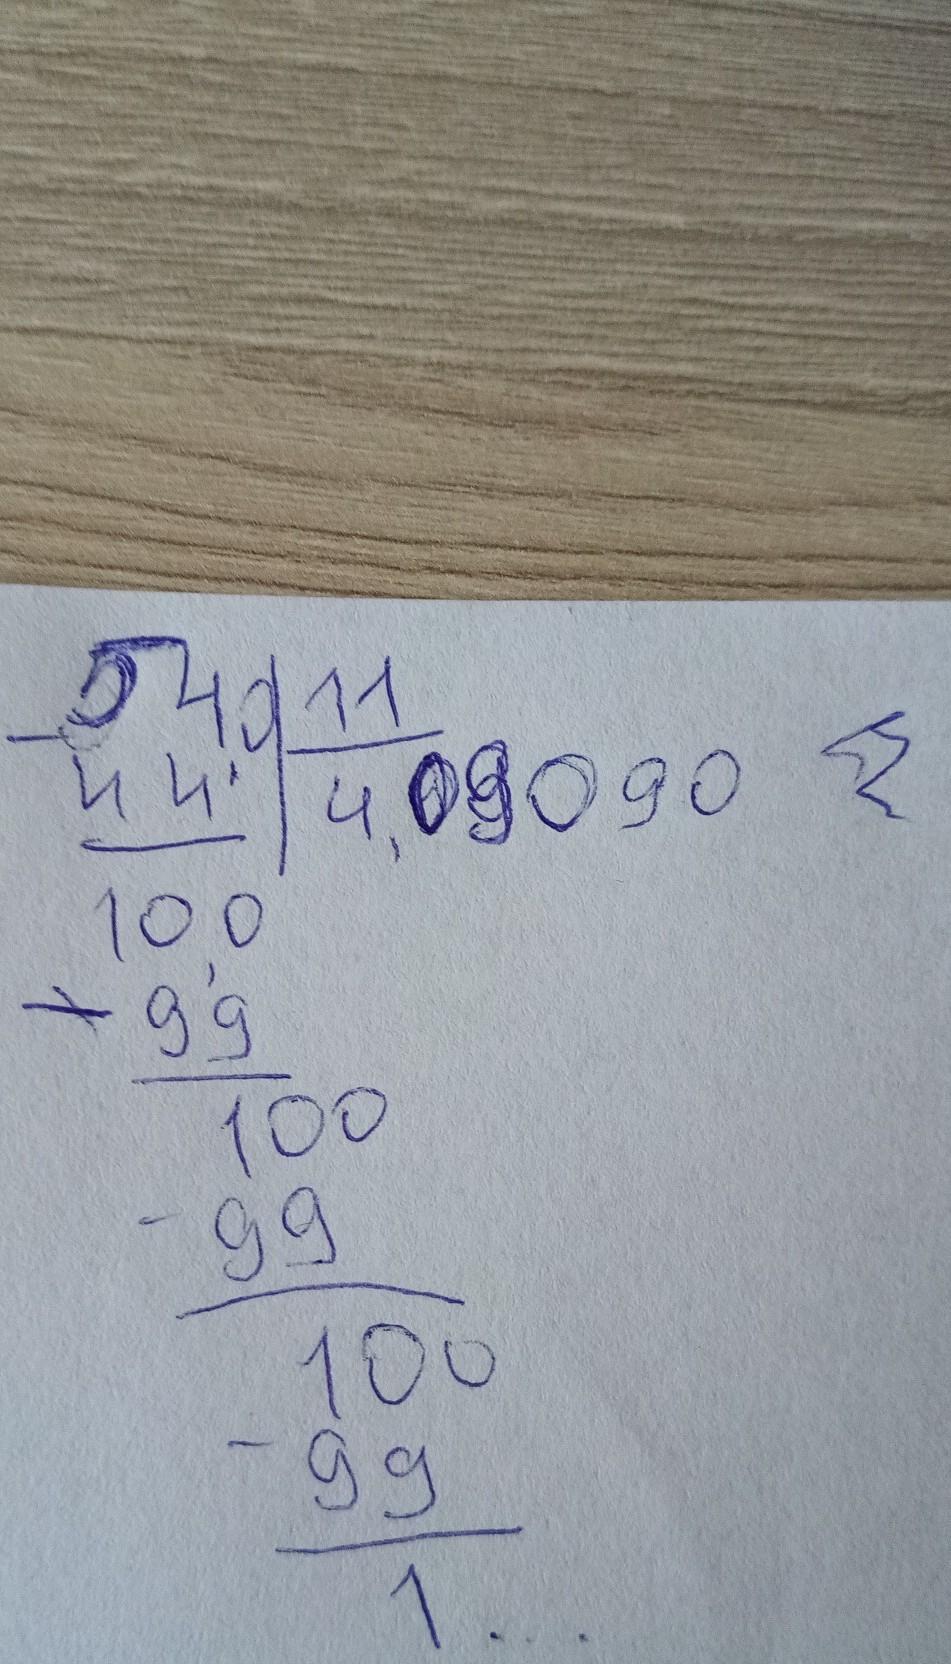 540 11
- 44 4,09090
100
+ 99
100
- 99
100
- 99
1...